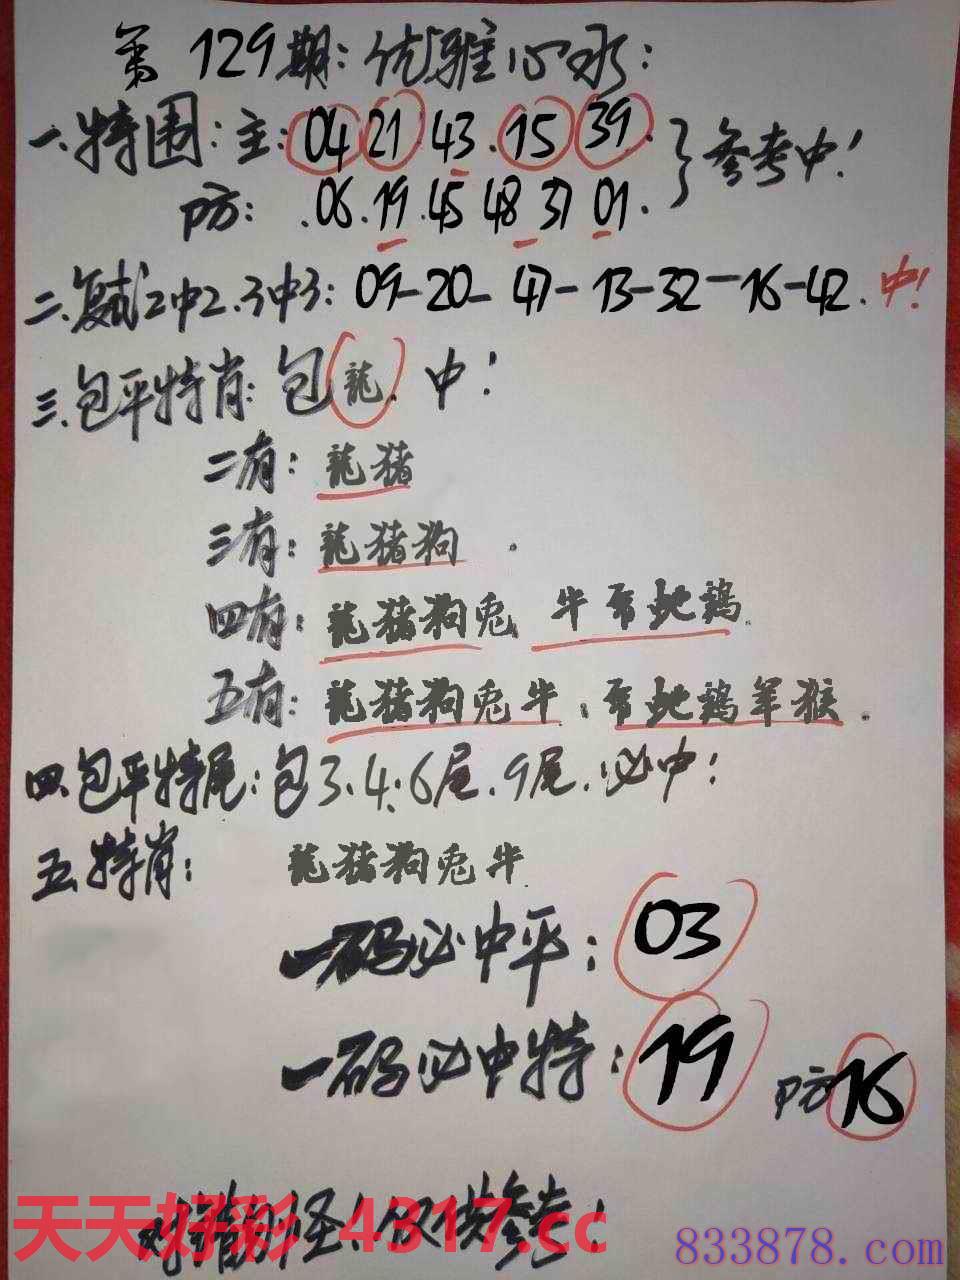 第129期:优雅心水:
一.特围:主:04 21 43.15 39. }参考中!
防:.06.19.45 48 37 01.
二.复试2中2.3中3:09-20-47-13-32-16-42.中!
三.包平特肖:包龍.中!
二有:龍猪
三有:龍猪狗.
四有:龍猪狗兎 牛馬蛇鶏.
五有:龍猪狗兎牛:馬蛇鶏羊猴.
四.包平特尾:包3.4.6尾.9尾.必中!
五.特肖:龍猪狗兎牛.
一码必中平:03
一码必中特:19 防16
对错别怪!仅供参考!
天天好彩 4317.cc
833878.com